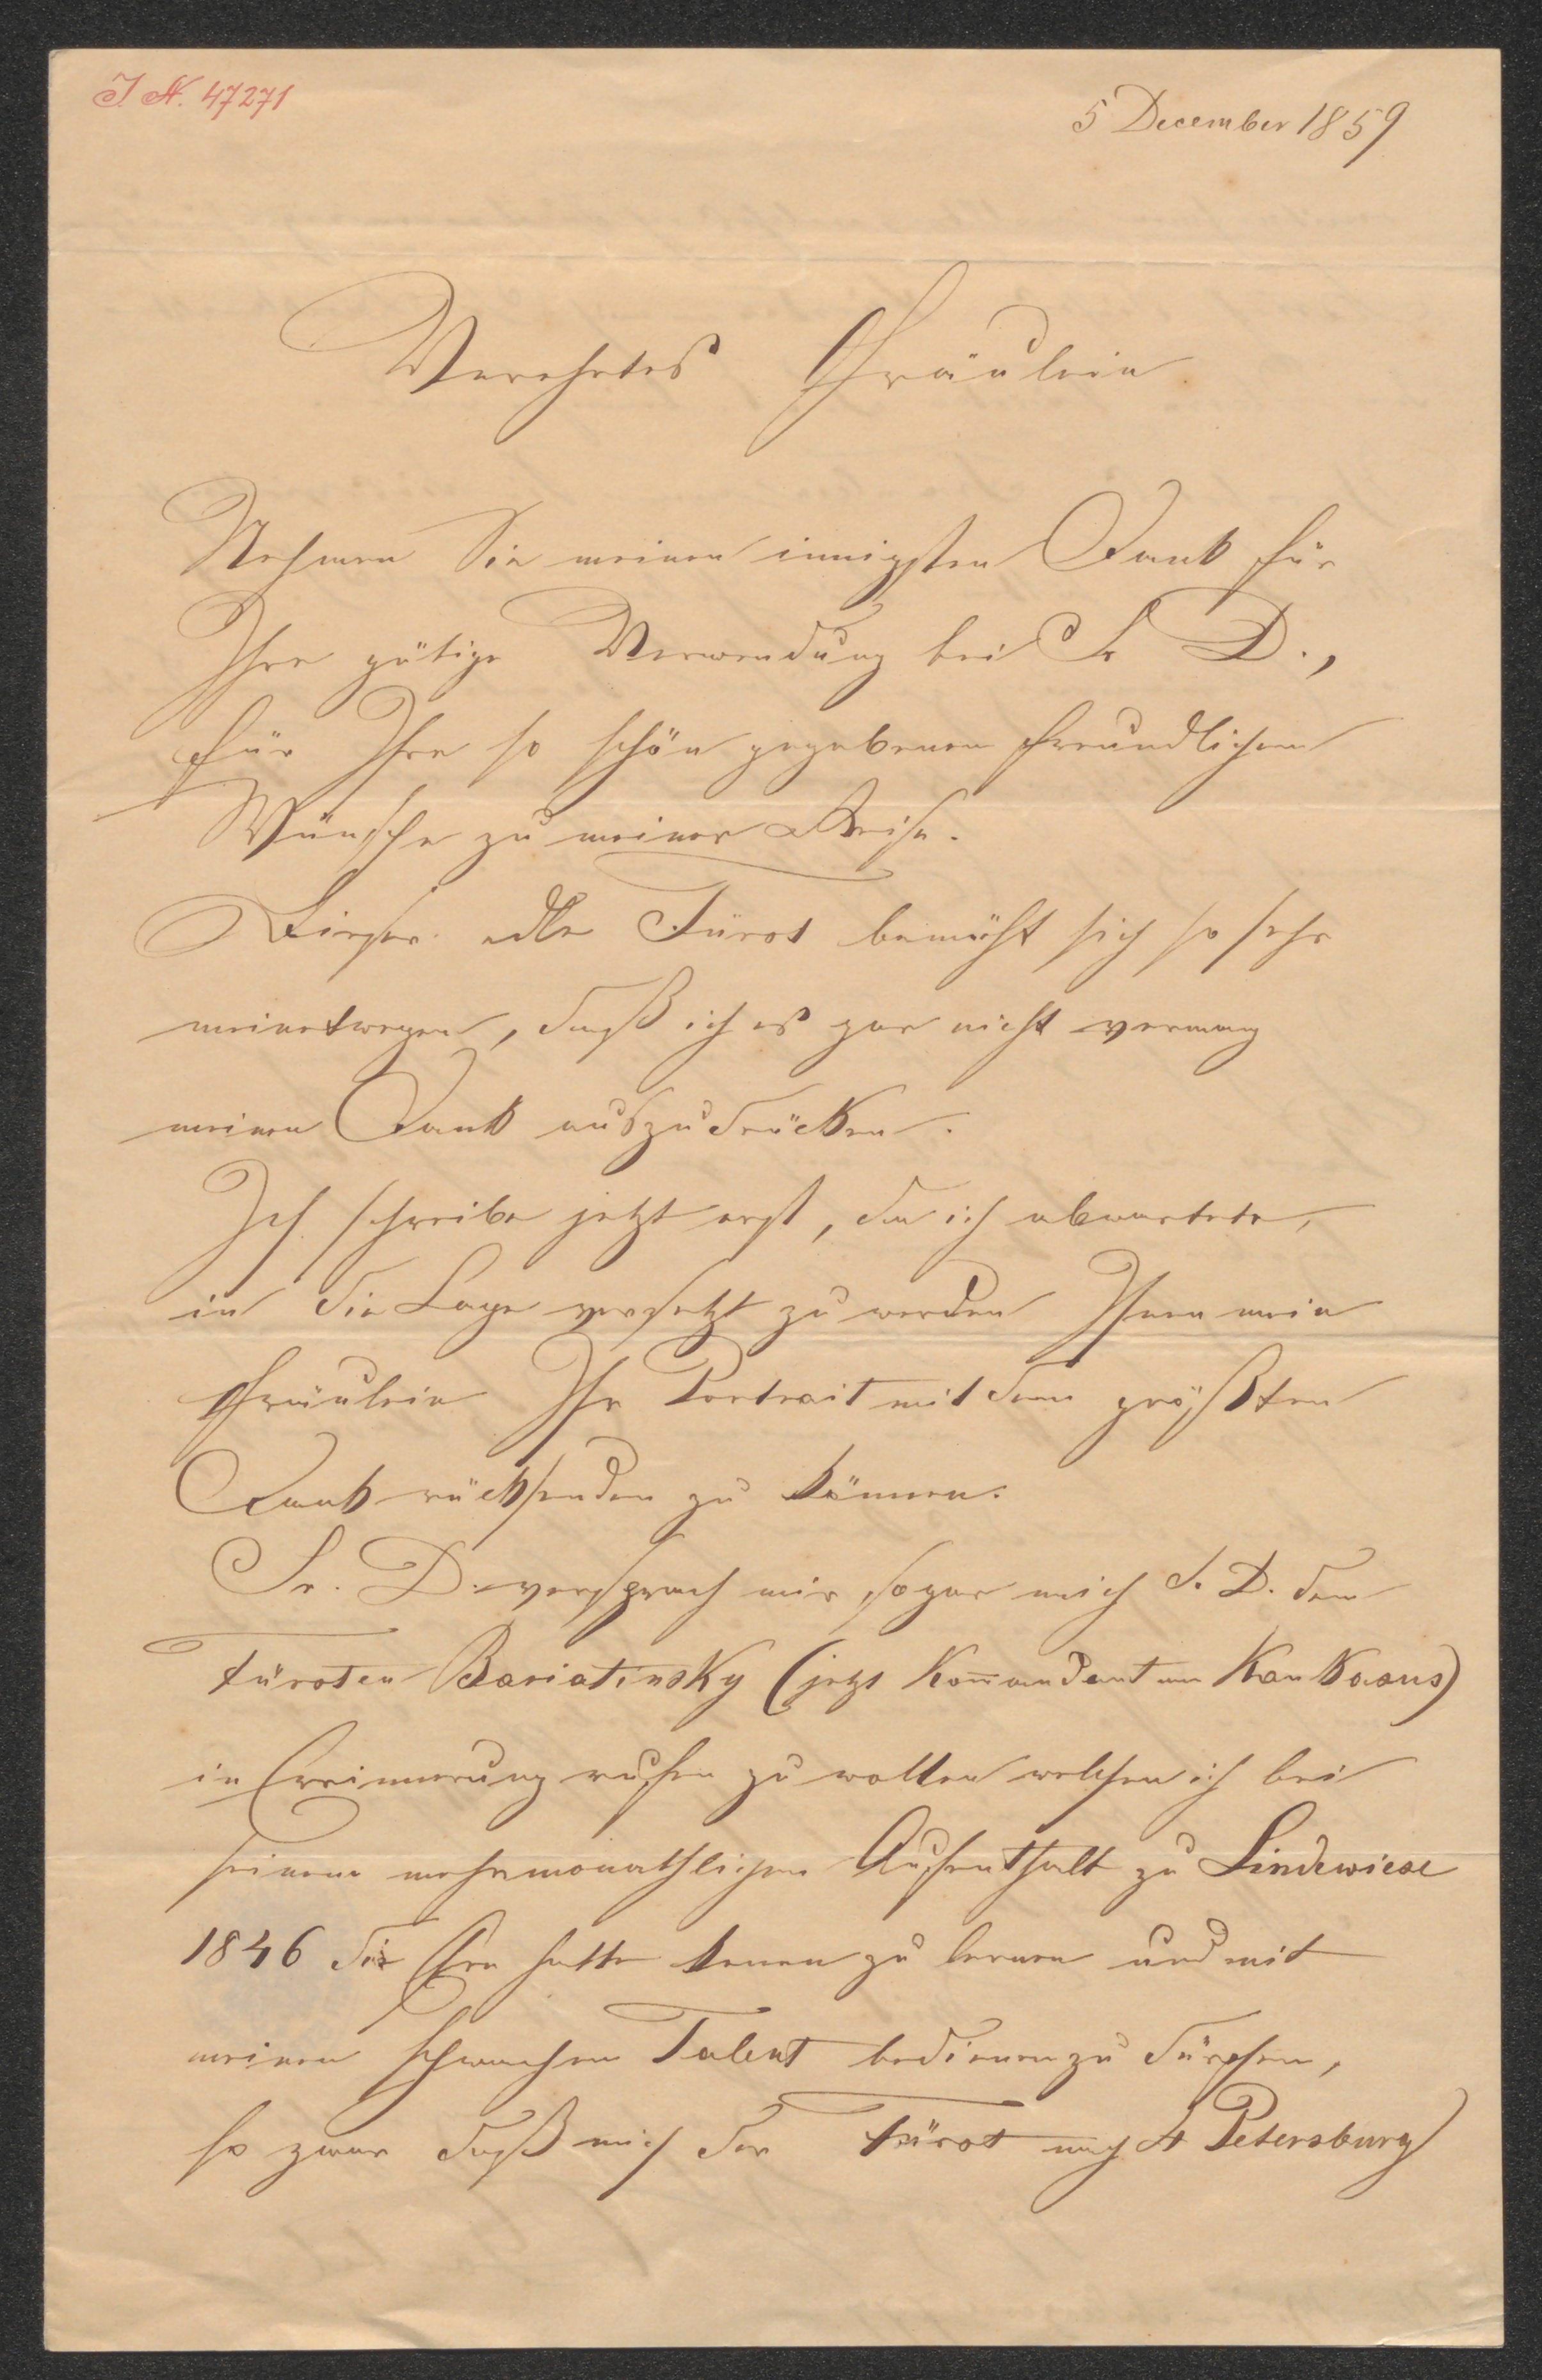 I. N. 47271
5 December 1859
Verehrtes Fräulein
Nehmen Sie meinen innigsten Dank für
Ihre gütige Verwendung bei Sr D.,
für Ihre so schön gegebenen freundlichen
Wünsche zu meiner Reise.
Dieser edle Fürst bemüht sich so sehr
meinetwegen, daß ich es gar nicht vermag
meinen Dank auszudrücken.
Ich schreibe jetzt erst, da ich abwartete,
in die Lage versetzt zu werden Ihnen mein
Fräulein Ihr Portrait mit dem größten
Dank rücksenden zu können.
Sr. D. versprach mir sogar mich S. D. dem
Fürsten Bariatinsky (jetzt Kom̅andant am Kaukasus)
in Errinnerung rufen zu wollen welchen ich bei
seinem mehrmonathlichen Aufenthalt zu Lindewiese
1846 die Ehre hatte kennen zu lernen und mit
meinem schwachen Talent bedienen zu dürfen,
so zwar daß mich der Fürst nach St Petersburg